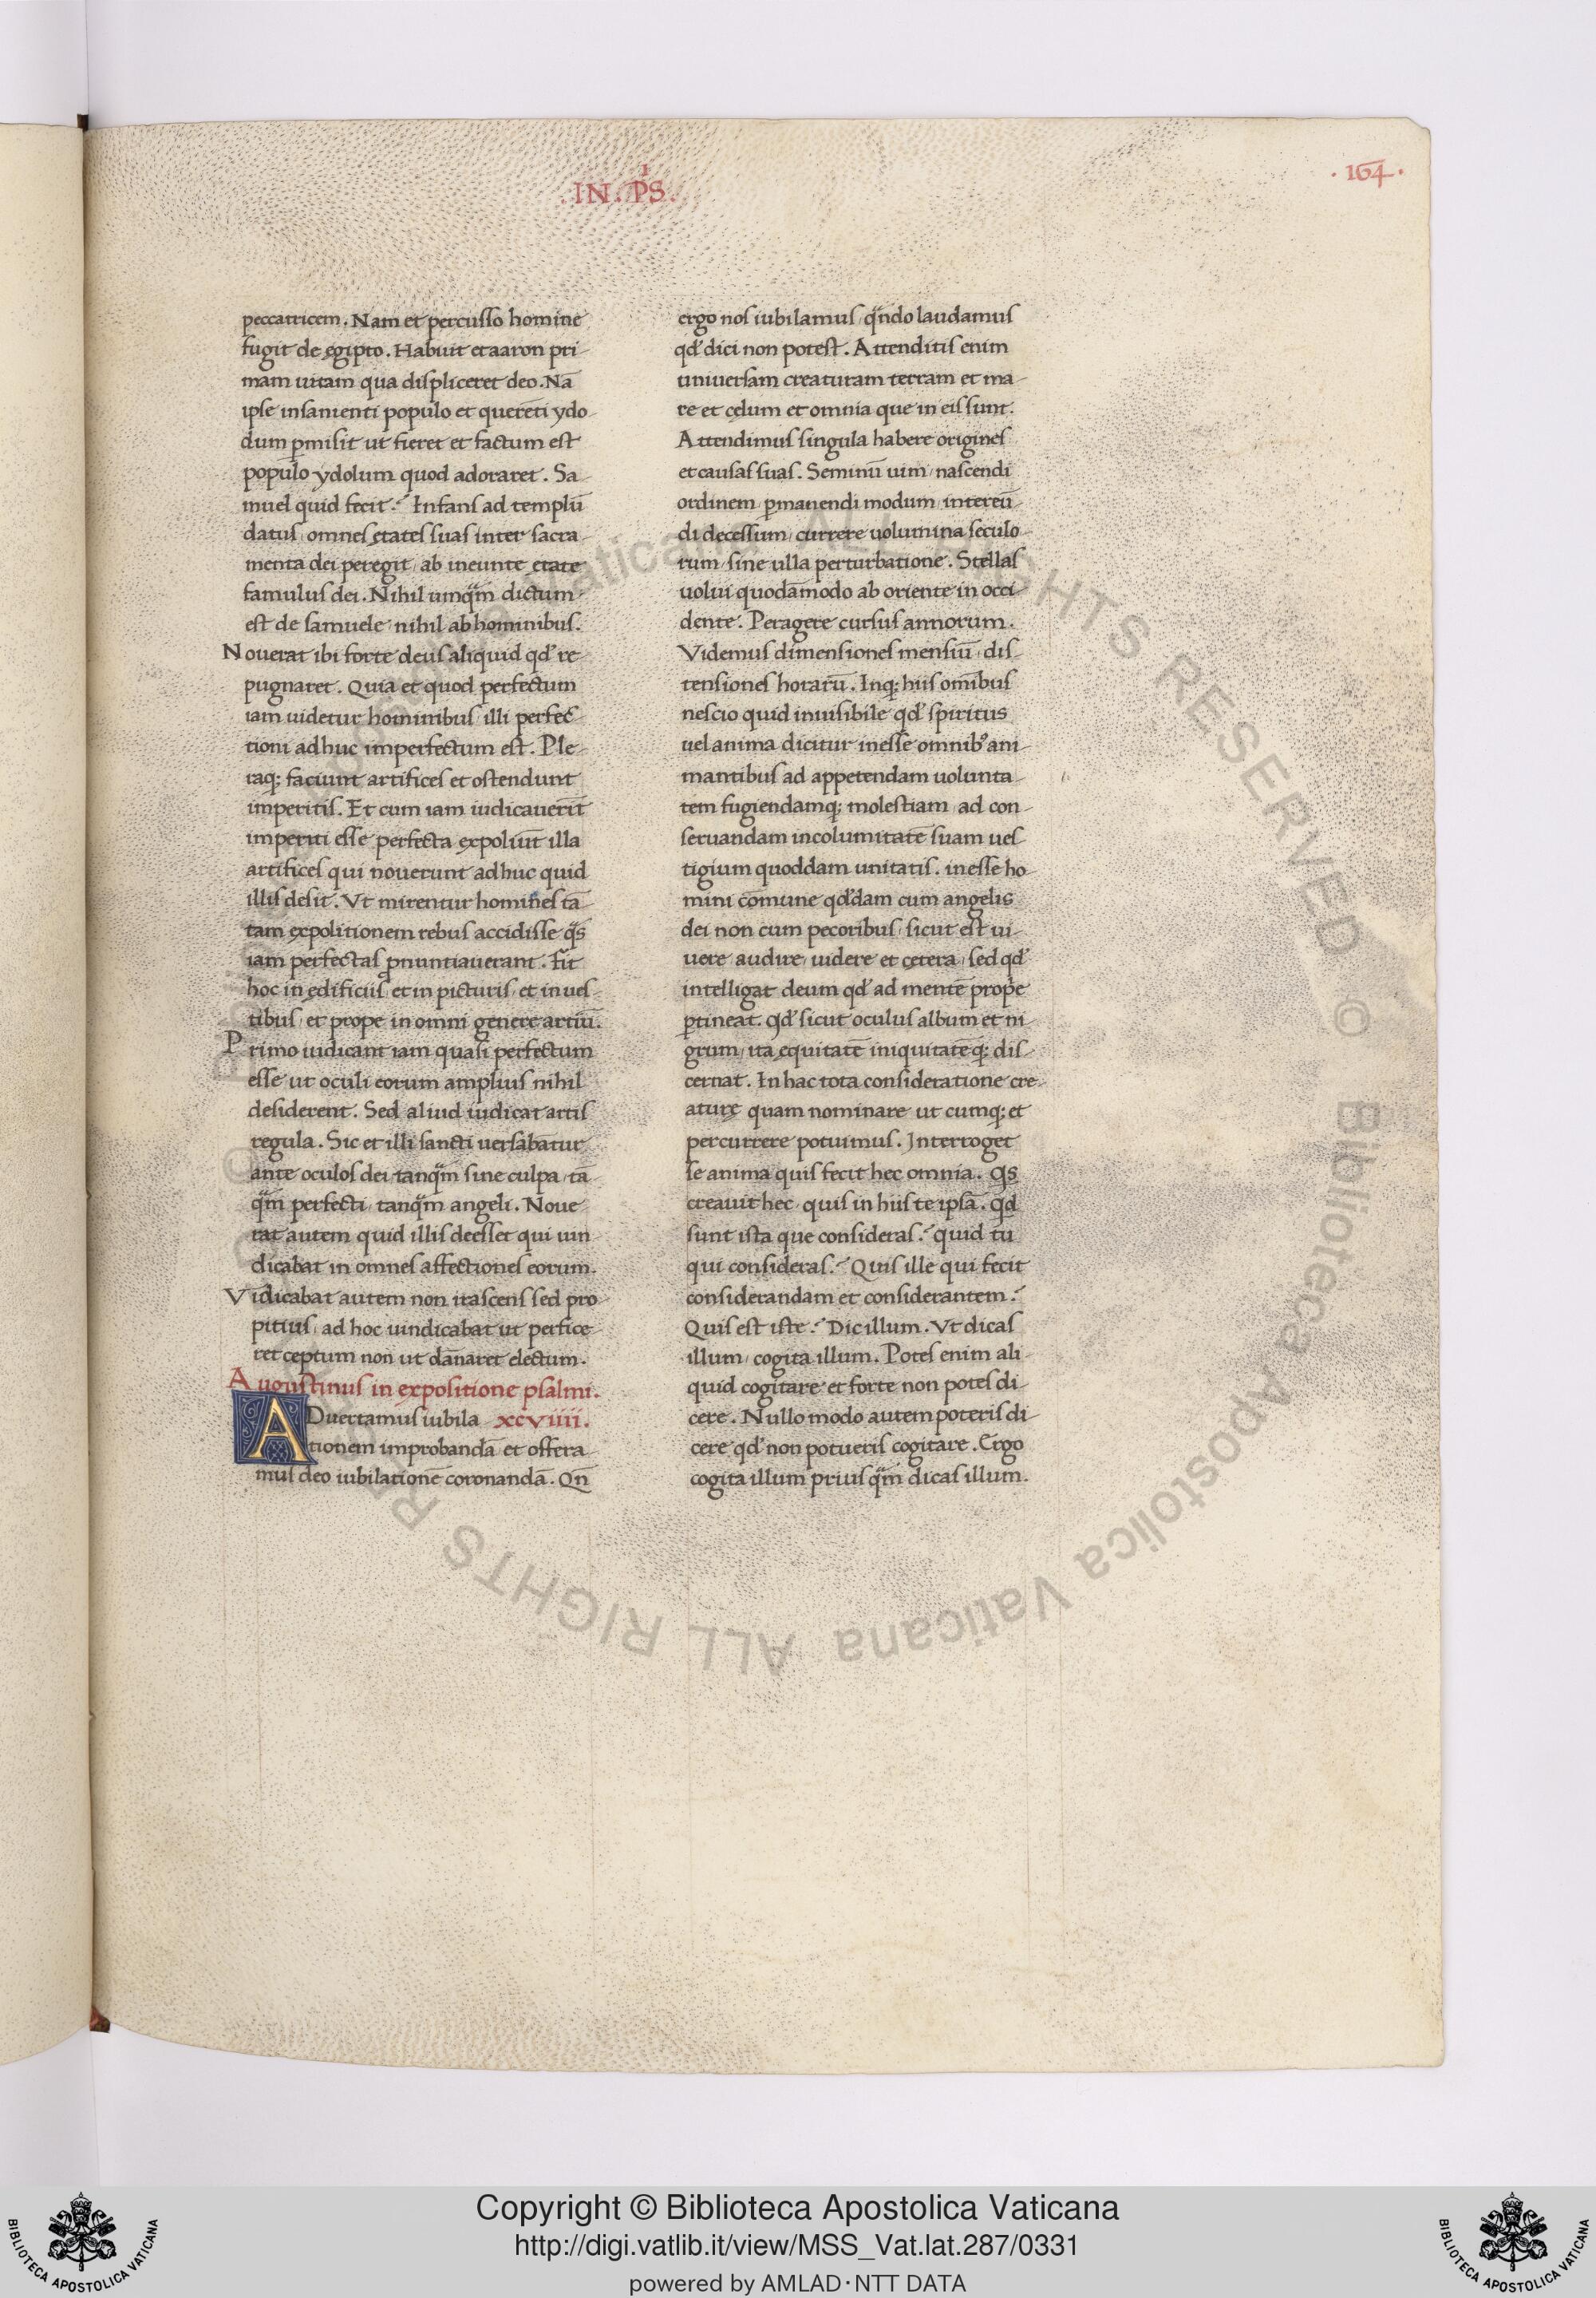 .IN. P̄S.
.164.
peccatricem. Nam et percusso homine
fugit de egipto. Habuit et aaron pri-
mam uitam qua displiceret deo. Nā
ipse insanienti populo et querēti ydo-
dum ꝑmisit ut fieret et factum est
populo ydolum quod adoraret. Sa-
muel quid fecit? Infans ad templū
datus/ omnes ętates suas inter sacra-
menta dei peregit/ ab ineunte etate
famulus dei. Nihil umq̄m dictum
est de samuele/ nihil ab hominibus.
Nouerat ibi forte deus aliquid qd' re-
pugnaret. Quia et quod perfectum
iam uidetur hominibus/ illi perfec-
tioni adhuc imperfectum est. Ple-
raq; faciunt artifices et ostendunt
imperitis. Et cum iam iudicauerīt
imperiti esse perfecta expoliūt illa
artifices qui nouerunt adhuc quid
illis desit. Vt mirentur homines tā-
tam expolitionem rebus accidisse q̄s
iam perfectas ꝓnuntiauerant. Fit
hoc in ędificiis/ et in picturis/ et in ues-
tibus/ et prope in omni genere artiū.
Primo iudicant iam quasi perfectum
esse ut oculi eorum amplius nihil
desiderent. Sed aliud iudicat artis
regula. Sic et illi sancti uersabātur
ante oculos dei/ tanq̄m sine culpa/ tā-
q̄m perfecti/ tanq̄m angeli. Noue-
rat autem quid illis deesset qui uin-
dicabat in omnes affectiones eorum.
Vidicabat autem non irascens sed pro-
pitius/ ad hoc uindicabat ut perfice-
ret ceptum non ut dānaret electum.
Augustinus in expositione psalmi.
ADuertamus iubila xcviiii.
tionem improbandā et offera-
mus deo iubilationē coronandā. Qn̄
ergo nos iubilamus/ q̄ndo laudamus
qd' dici non potest. Attenditis enim
uniuersam creaturam terram et ma-
re et cęlum et omnia que in eis sunt.
Attendimus singula habere origines
et causas suas. Seminū uim/ nascendi
ordinem/ ꝑmanendi modum/ intereū-
di decessum/ currere uolumina seculo-
rum/ sine ulla perturbatione. Stellas
uolui quodāmodo ab oriente in occi-
dente. Peragere cursus annorum.
Videmus dimensiones mensiū/ dis-
tensiones horarū. Inq; hiis omībus
nescio quid inuisibile qd' spiritus
uel anima dicitur inesse omnibꝰ ani-
mantibus ad appetendam uolunta-
tem fugiendamq; molestiam/ ad con-
seruandam incolumitatē suam ues-
tigium quoddam unitatis. inesse ho-
mini cōmune qd'dam cum angelis
dei non cum pecoribus/ sicut est ui-
uere/ audire/ uidere et cętera/ sed qd'
intelligat deum qd' ad mentē prope
ꝑtineat. qd' sicut oculus album et ni-
grum/ ita ęquitatē iniquitatēq; dis-
cernat. In hac tota consideratione cre-
aturę quam nominare ut cumq; et
percurrere potuimus. Interroget
se anima quis fecit hec omnia. Qs
creauit hec/ quis in hiis te ipsā. qd
sunt ista que consideras? quid tu
qui consideras? Quis ille qui fecit
considerandam et considerantem?
Quis est iste? Dic illum. Vt dicas
illum/ cogita illum. Potes enim ali-
quid cogitare et forte non potes di-
cere. Nullo modo autem poteris di-
cere qd' non potueris cogitare. Ergo
cogita illum prius q̄m dicas illum.
© Biblioteca Apostolica Vaticana ALL RIGHTS RESERVED © Biblioteca Apostolica Vaticana ALL RIGHTS RESERVED
Copyright © Biblioteca Apostolica Vaticana
http://digi.vatlib.it/view/MSS_Vat.lat.287/0331
powered by AMLAD·NTT DATA
BIBLIOTECA APOSTOLICA VATICANA
BIBLIOTECA APOSTOLICA VATICANA